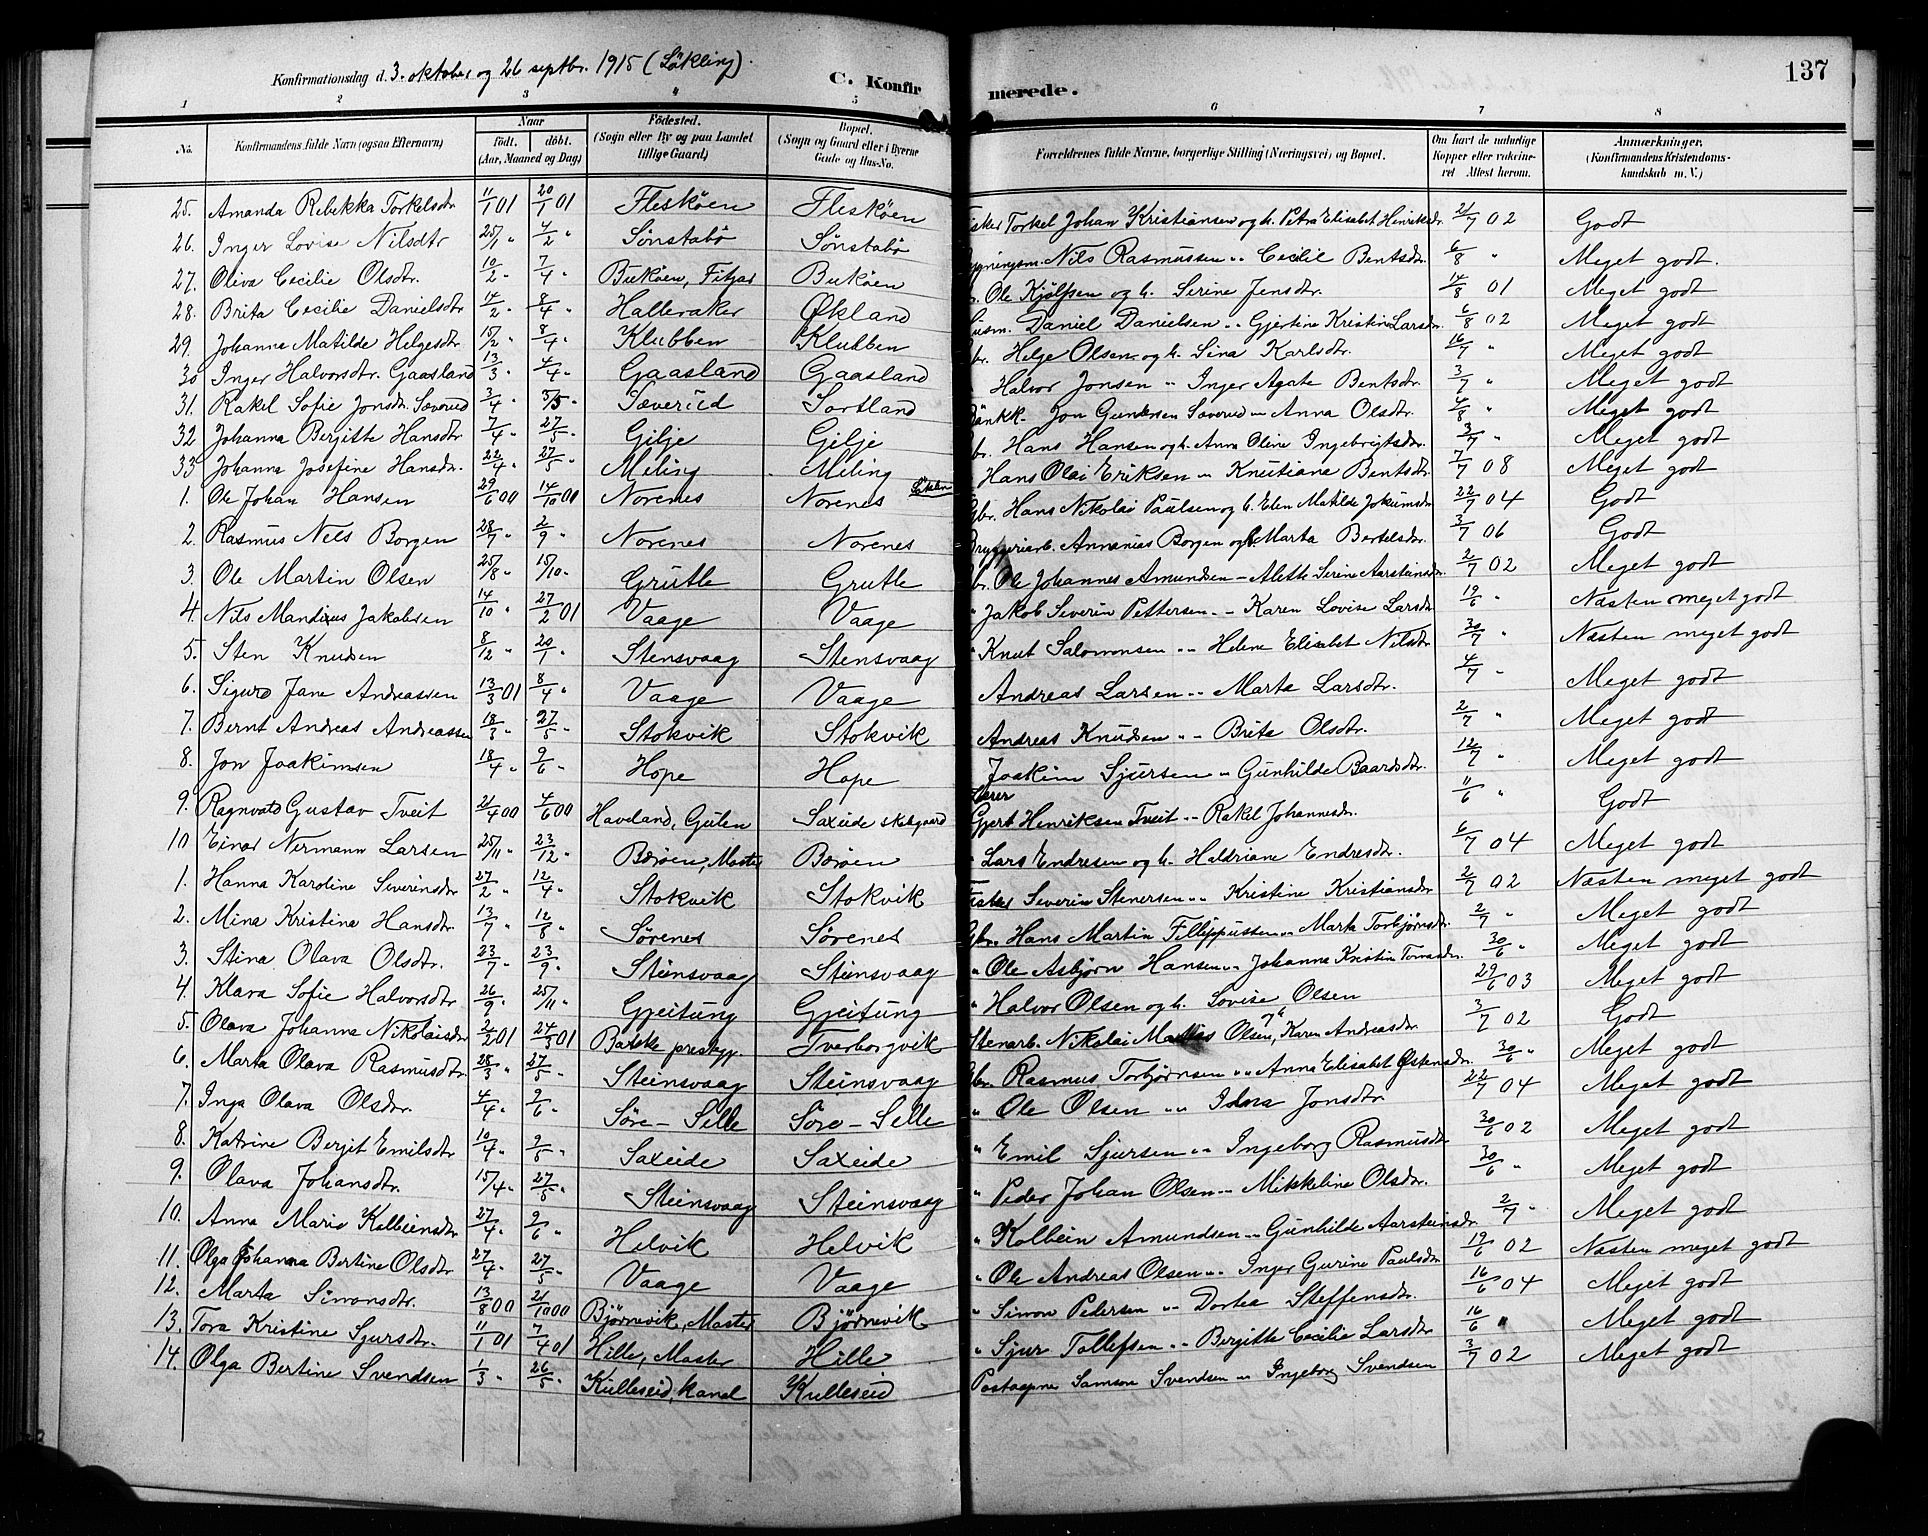 137
Konfirmationsdag d. 3. oktober og 26 septbr. 1915 (Lökling).
C. Konfirmerede.
1 2 3 4 5 6 7 8
No. Konfirmandens fulde Navn (ogsaa Efternavn) Naar födt. döbt. (Aar, Maaned og Dag) Födested. (Sogn eller By og paa Landet tillige Gaard) Bopæl. (Sogn og Gaard eller i Byerne Gade og Hus-No. Forældrenes fulde Navne, borgerlige Stilling (Næringsvei) og Bopæl. Om havt de naturlige Kopper eller vakcineret Attest herom. Anmærkninger. (Konfirmandens Kristendomskundskab m. V.)
25. Amanda Rebekka Torkelsdtr 11/1 01 20/1 01 Flesköen Flesköen Fisker Torkel Johan Kristiansen og h. Petra Elisabet Henriksdr. 21/7 02 Godt
26. Inger Lovise Nilsdtr 25/1 " 4/2 " Sönstabö Sönstabö Nils Rasmussen " Cecilie Bentsdtr. 6/8 " Meget godt.
27. Oliva Cecilie Olsdtr. 10/2 " 7/4 " Buköen, Fitjar Buköen Ole Kjölfsen og h. Serine Jensdtr. 14/8 01 Meget godt
28. Brita Cecilie Danielsdtr 14/2 " 8/4 " Halleraker Økland Husm. Daniel Danielsen " Gjertine Kristine Larsdr. 6/8 02 Meget godt
29. Johanna Matilde Helgesdtr. 15/2 " 8/4 " Klubben Klubben Gbr. Helge Olsen og h. Sina Karlsdtr. 16/7 " Meget godt
30 Inger Halvorsdtr. Gaasland 13/3 " 4/4 " Gaasland Gaasland Halvor Jonsen " Inger Agate Bentsdtr. 3/7 " Meget godt
31. Rakel Sofie Jonsdtr. Sæverud 3/4 " 3/5 " Sæverud Sortland Jon Gundersen Sæverud " Anna Olsdtr. 4/8 " Meget godt
32 Johanna Bergitte Hansdtr 7/4 " 27/5 " Gilje Gilje Gbr. Hans Hansen og h. Anna Oline Ingebrigtsdr. 3/7 " Meget godt
33 Johanna Josefine Hansdr. 22/4 " 27/5 " Meling Meling Hans Olai Eriksen " Knutiana Bentsdtr 7/7 08 Meget godt
1. Ole Johan Hansen 29/6 00 14/10 00 Norenes Norenes Gbr. Hans Nikolai Paulsen og h. Elen Matilde Jokumsdr 22/7 04 Godt
2. Rasmus Nels Borgen 28/7 " 2/9 " Norenes Norenes Bryggeriarb. Annanias Borgen og h. Marta Bertelsdtr. 3/7 06 Godt
3. Ole Martin Olsen 25/8 " 15/10 " Grutle Grutle Gbr. Ole Johannes Amundsen " Alette Serine Aarsteinsdr. 2/7 02 Meget godt
4. Nils Mandius Jakobsen 14/10 " 27/2 01 Vaage Vaage " Jakob Severin Pettersen " Karen Lovise Larsdr 19/6 " Næsten meget godt
5. Sten Knudsen 8/12 " 20/1 " Stensvaag Stensvaag " Knut Salomonsen " Helene Elisabet Nilsdr 30/7 " Næsten meget godt
6. Sigurd Jane Andreassen 13/3 01 8/4 " Vaage Vaage Andreas Larsen " Marta Larsdtr. 4/7 " Meget godt
7. Bernt Andreas Andreassen 18/3 " 27/5 " Stokvik Stokvik Andreas Knudsen " Brita Olsdtr. 2/7 " Meget godt
8. Jon Joakimsen 18/4 " 9/6 " Hope Hope Joakim Sjursen " Gunhilde Baardsdtr. 12/7 " Meget godt
9. Ragnvald Gustav Tveit 21/4 00 4/6 00 Haveland, Gulen Saxeide skolgaard Lærer Gjert Henriksen Tveit " Rakel Johannesdr. 11/6 " Godt
10 Einar Nermann Larsen 25/11 " 23/12 " Boröen, Moster Boröen " Lars Endresen og h. Haldriane Endresdtr. 6/7 04 Meget godt
1. Hanna Karoline Severinsdr 27/2 " 12/4 " Stokvik Stokvik Fisker Severin Stenersen " Kristine Kristiansdr 2/7 02 Næsten meget godt
2. Mina Kristina Hansdtr. 13/7 " 12/8 " Sörenes Sörenes Gbr. Hans Martin Fillippussen " Marta Torbjörnsdr 2/7 " Meget godt
3. Stina Olava Olsdtr. 23/7 " 23/9 " Steinsvaag Steinsvaag " Ole Asbjörn Hansen " Johanna Kristin Tomasdr. 30/6 " Meget godt
4. Klara Sofie Halvorsdtr 26/9 " 25/11 " Gjeitung Gjeitung " Halvor Olsen og h. Lovise Olsen 29/6 03 Meget godt
5. Olava Johanna Nikolaisdr 2/2 01 24/5 01 prestegj. Tverborgvik Stenarb. Nikolai Olsen, Karen Andreasdtr 3/7 02 Godt
6. Marta Olava Rasmusdtr 28/3 " 27/5 " Steinsvaag Steinsvaag Gbr. Rasmus Torbjörnsen " Anna Elisabet Østensdr. 30/6 " Meget godt
7. Inga Olava Olsdtr. 4/4 " 9/6 " Söre-Selle Söre-Selle " Ole Olsen " Jonsdtr 22/7 04 Meget godt
8. Katrine Bergit Emilsdtr 10/4 " 2/5 " Saxeide Saxeide " Emil Sjursen " Ingeborg Rasmusdtr 30/6 02 Meget godt
9. Olava Johansdtr. 15/4 " 27/5 " Steinsvaag Steinsvaag " Peder Johan Olsen " Mikkeline Olsdr. 30/6 " Meget godt
10. Anna Marie Kolbeinsdtr 27/4 " 9/6 " Helvik Helvik " Kolbein Amundsen " Gunhilde Aarsteinsdr 2/7 " Meget godt
11. Olga Johanna Bertine Olsdtr 27/4 " 27/5 " Vaage Vaage " Ole Andreas Olsen " Inger Gurine Paulsdtr 19/6 02 Næsten meget godt
12. Marta Simonsdtr. 13/8 00 21/10 00 Björnevik, Moster Björnevik " Simon Pedersen " Dortea Steffensdtr. 16/6 04 Meget godt
13. Tora Kristine Sjursdtr. 11/1 01 7/4 01 Hille, Moster Hille " Sjur Tollefsen " Bergitte Cecilie Larsdtr 16/6 " Meget godt
14. Olga Bertine Svendsen 1/3 " 26/5 " Kulleseid, kanal Kulleseid Samson Svendsen " Ingeborg Svendsen 3/7 02 Meget godt